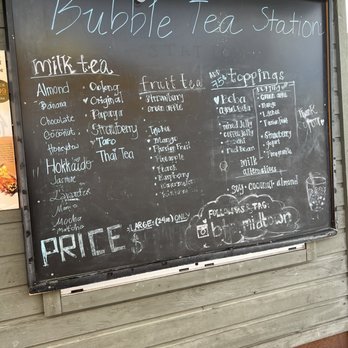 Bubble Tea Station
milk tea
Almond
Banana
Chocolate
Coconut
Honeydew
Hokkaido
Jasmine
Lavender
Mocha
Matcha
Oolong
Original
Papaya
Strawberry
Taro
Thai Tea
fruit tea
Strawberry
Green apple
Lychee
Mango
Passion Fruit
Pineapple
Peach
Raspberry
Watermelon
toppings
Boba
Red Bean
Mango
Lychee
Strawberry
yogurt
milk
alternatives
Soy - Coconut - almond
PRICE
LARGE (24oz) ONLY
$
FOLLOW US & TAG
bts_midtown